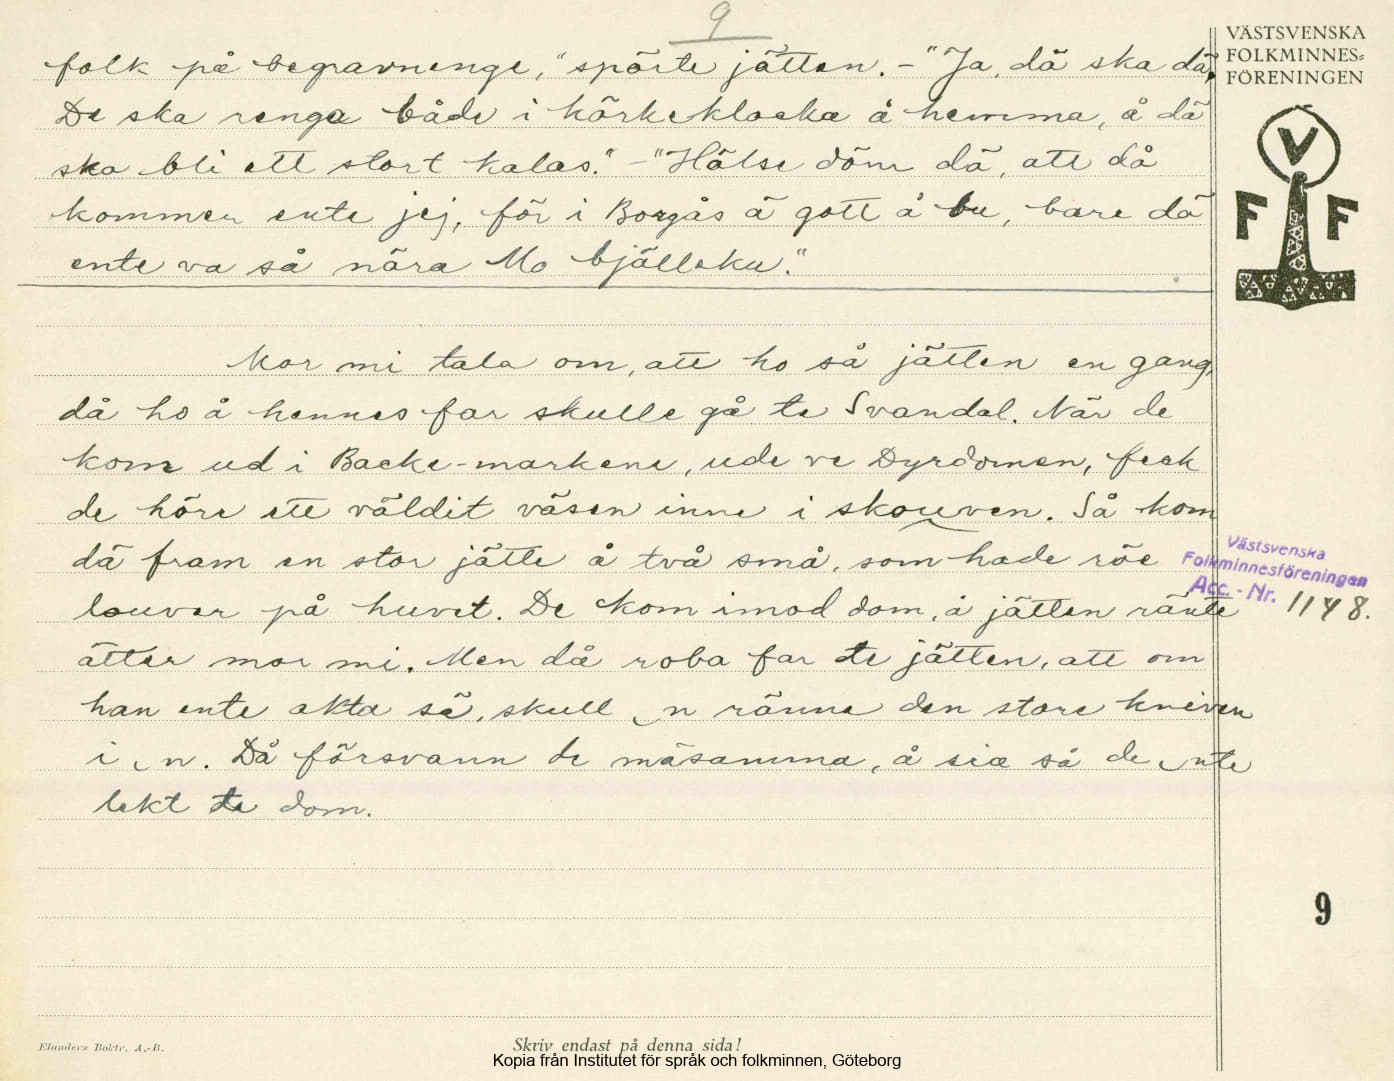 9
VÄSTSVENSKA
FOLKMINNES-
FÖRENINGEN
V
F F
folk på begravnenge," spörte jätten. - "Ja, dä ska dä,
De ska renga både i körkeklocka å hemma, å dä
ska bli ett stort kalas." - "Hälse döm dä, att då
kommer ente jej, för i Borgås ä gott å bu, bare dä
ente va så nära Mo bjälleku."
Mor mi tala om, att ho så jätten en gang,
då ho å hennes far skulle gå te Svandal. När de
kom ud i Backe-markene, ude ve Dyrdomen, feck
de höre ett väldit väsen inne i skouven. Så kom
dä fram en stor jätte å två små, som hade röe
louver på huvet. De kom imod dom, å jätten ränte
ätter mor mi. Men då roba far te jätten, att om
han ente akta sä, skull n ränne den store kniven
i n. Då försvann de mäsamma, å sia så de nte
lekt te dom.
Västsvenska
Folkminnesföreningen
Acc. - Nr. 1148.
9
Elanders Boktr. A.-B.
Skriv endast på denna sida!
Kopia från Institutet för språk och folkminnen, Göteborg